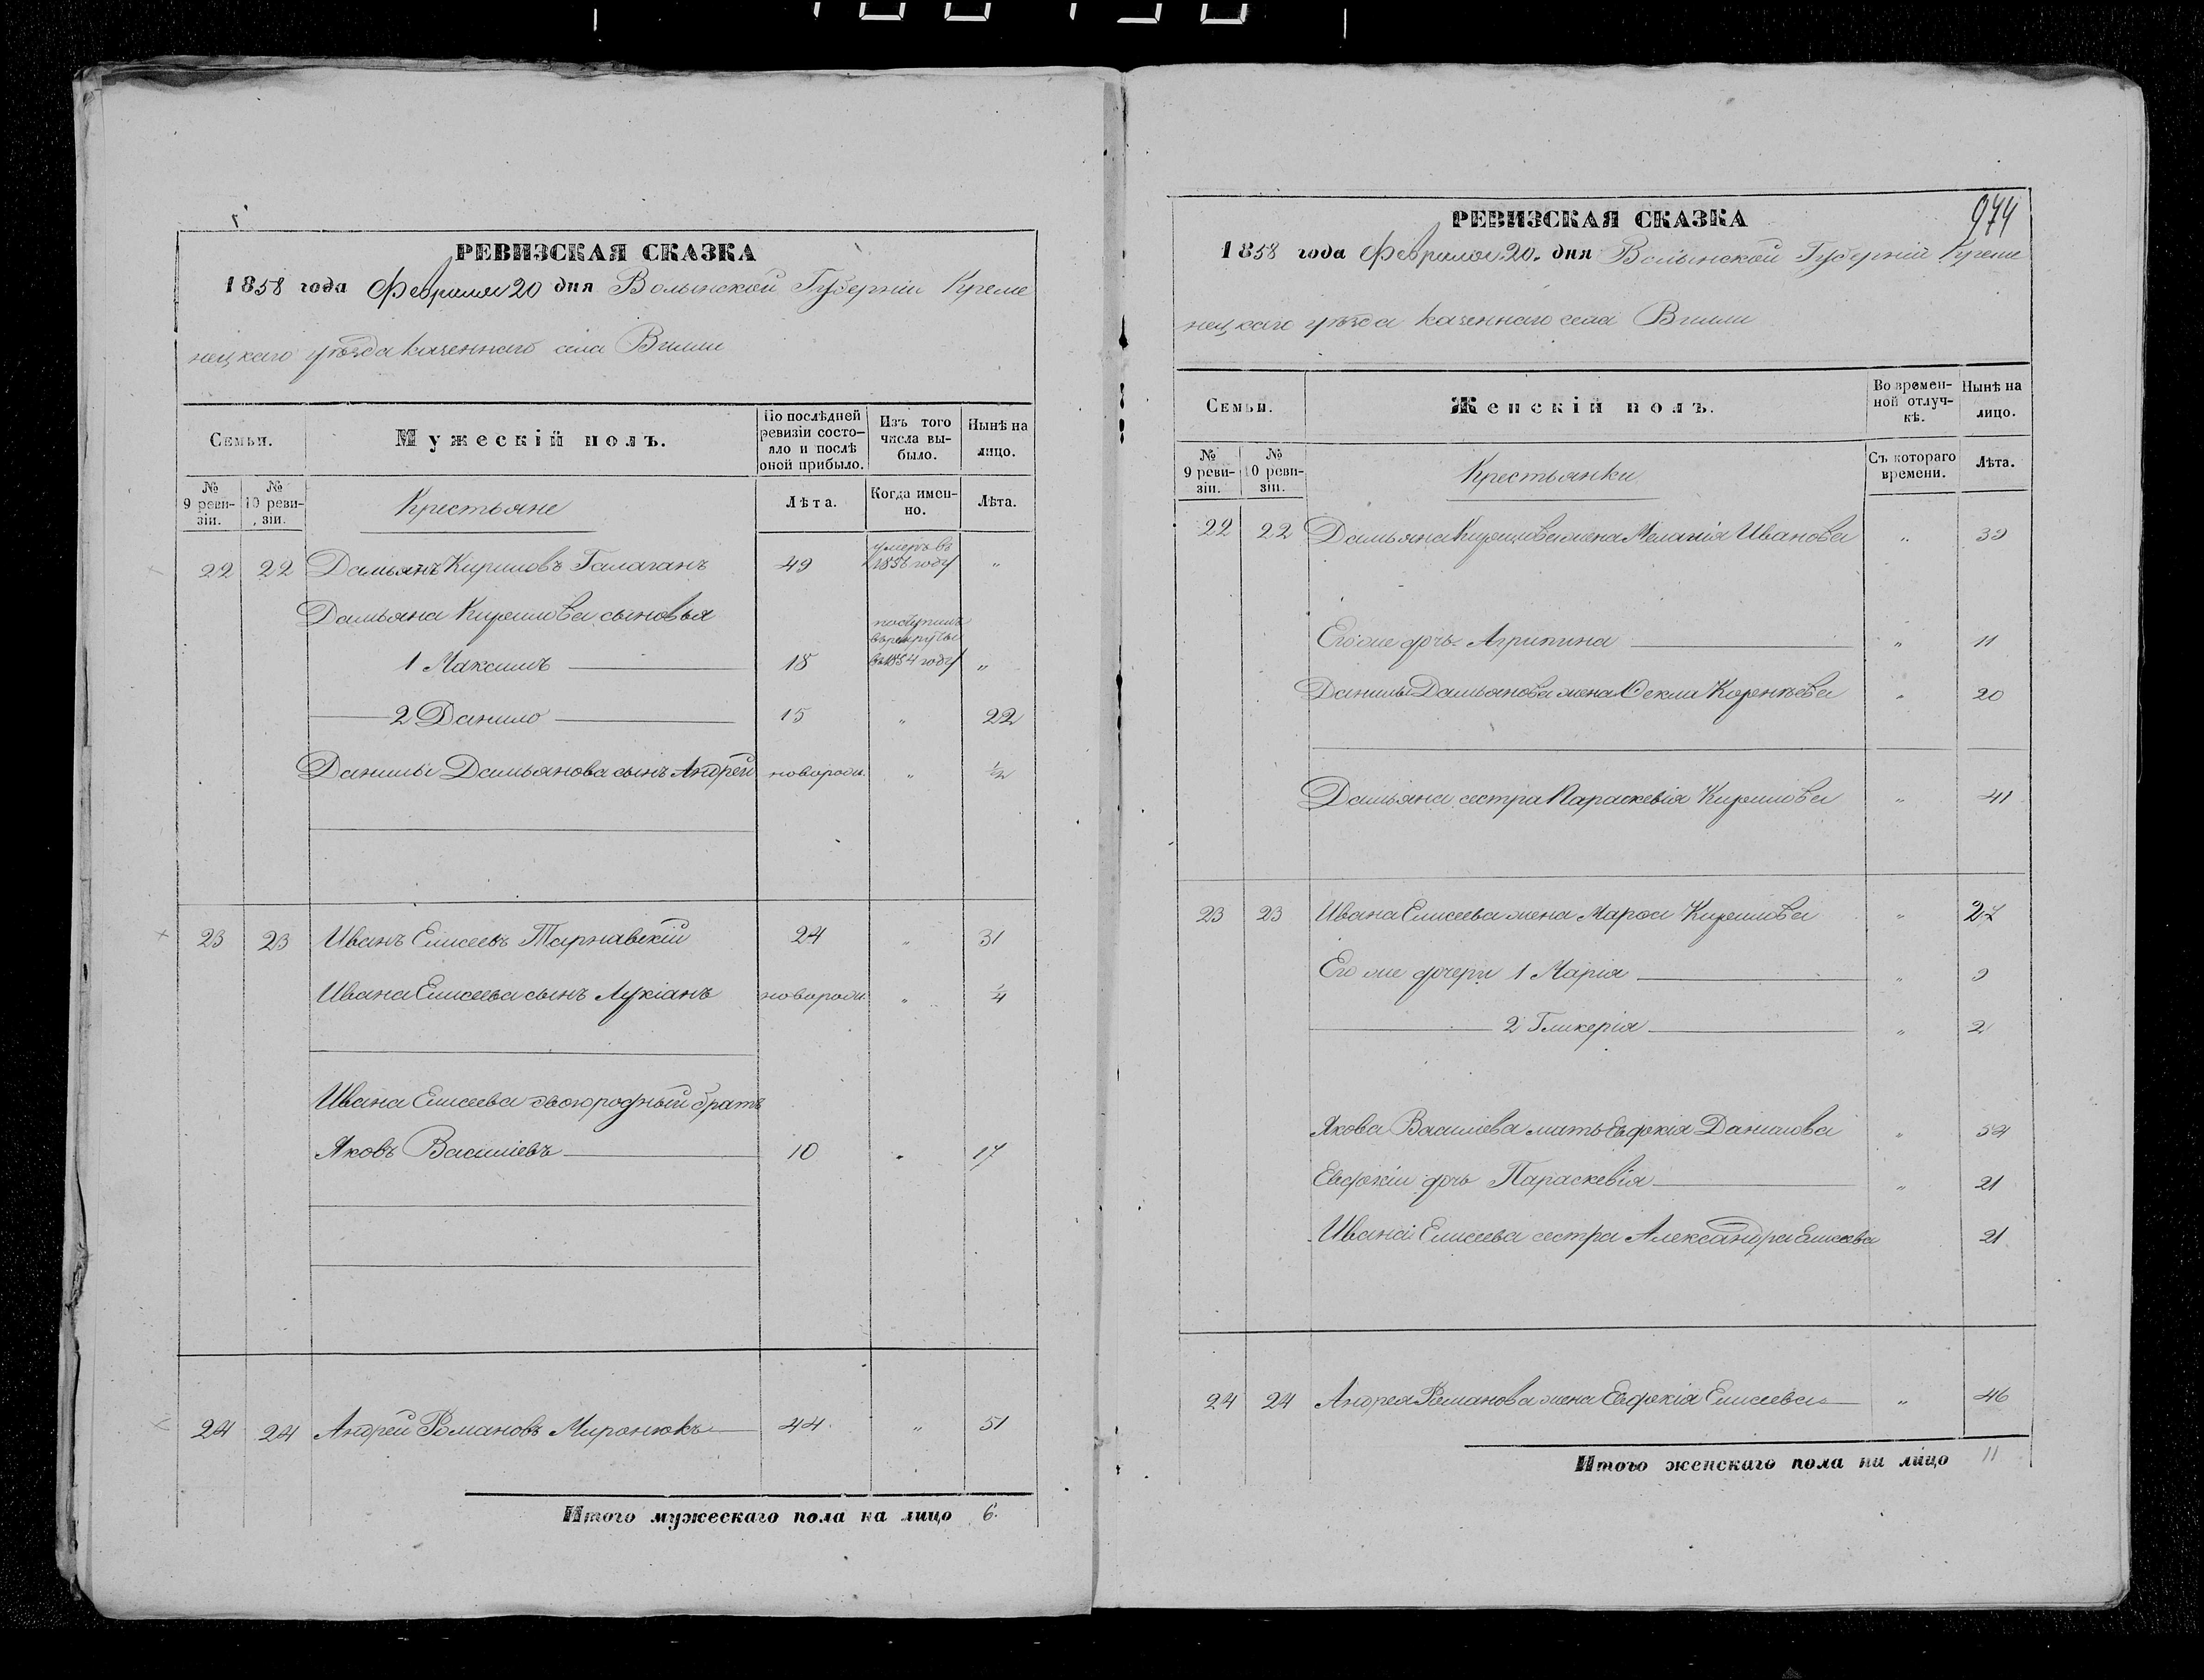 РЕВИЗСКАЯ СКАЗКА
1858 года Февраля 20 дня Волынской Губерніи Креме
нецкаго уѣзда казеннаго села Вилии
Семьи.
Мужескій полъ.
По послѣдней ревизіи состояло и послѣ оной прибыло.
Изъ того числа выбыло.
Нынѣ на лицо.
№ 9 ревизіи.
№ 10 ревизіи.
Крестьяне
Лѣта.
Когда именно.
Лѣта.
22 22 Дамьянъ Кириловъ Галаганъ 49 умеръ въ 1856 году "
Дамьяна Кирилова сыновья
1 Максимъ 18 поступилъ въ рекруты въ 1854 году "
2 Данило 15 " 22
Данилы Дамьянова сынъ Андрей новорожд. " ½
23 23 Иванъ Елисеевъ Тарнавскій 24 " 31
Ивана Елисеева сынъ Лукіанъ новорожд. " ¼
Ивана Елисеева двоюродный братъ
Яковъ Василіевъ 10 " 17
24 24 Андрей Романовъ Миронюкъ 44 " 51
Итого мужескаго пола на лицо 6.
974
РЕВИЗСКАЯ СКАЗКА
1858 года Февраля 20. дня Волынской Губерніи Креме
нецкаго уѣзда казеннаго села Вилии
Семьи.
Женскій полъ.
Во временной отлучкѣ.
Нынѣ на лицо.
№ 9 ревизіи.
№ 10 ревизіи.
Крестьянки
Съ котораго времени.
Лѣта.
22 22 Дамьяна Кирилова жена Меланія Иванова " 39
Его же дочь Агрипина " 11
Данилы Дамьянова жена Fекла Корнѣева " 20
Дамьяна сестра Параскевія Кирилова " 41
23 23 Ивана Елисеева жена Мароа Кирилова " 27
Его же дочери 1 Марія " 9
2 Гликерія " 2
Якова Василіева мать Евдокія Данилова " 54
Евдокіи дочь Параскевія " 21
Ивана Елисеева сестра Александра Елисеева 21
24 24 Андрея Романова жена Евдокія Елисеева " 46
Итого женскаго пола на лицо 11